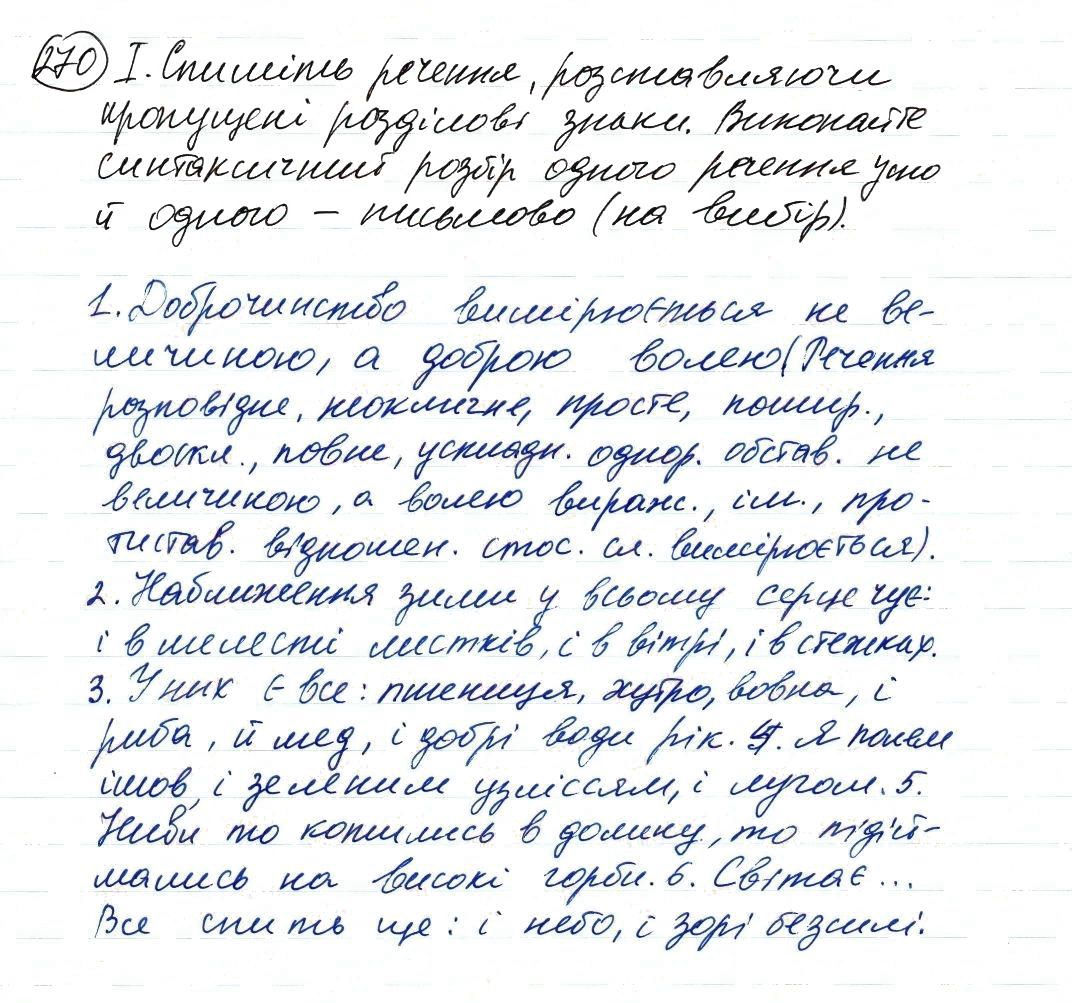 270 I. Спишіть речення, розставляючи
пропущені розділові знаки. Виконайте
синтаксичний розбір одного речення усно
й одного – письмово (на вибір).
1. Доброчинство вимірюється не ве-
личиною, а доброю волею (Речення
розповідне, неокличне, просте, пошир.,
двоскл., повне, ускладн. однор. обстав. не
величиною, а волею вираж., ім., про-
тистав. відношен. стос. сл. вимірюється).
2. Наближення зими у всьому серце чує:
і в шелесті листків, і в вітрі, і в стежках.
3. У них є все: пшениця, хутро, вовна, і
риба, й мед, і добрі води рік. 4. Я полем
ішов, і зеленим узліссям, і лугом. 5.
Ниви то котились в долину, то підій-
мались на високі горби. 6. Світає ...
Все спить ще: і небо, і зорі безсилі.